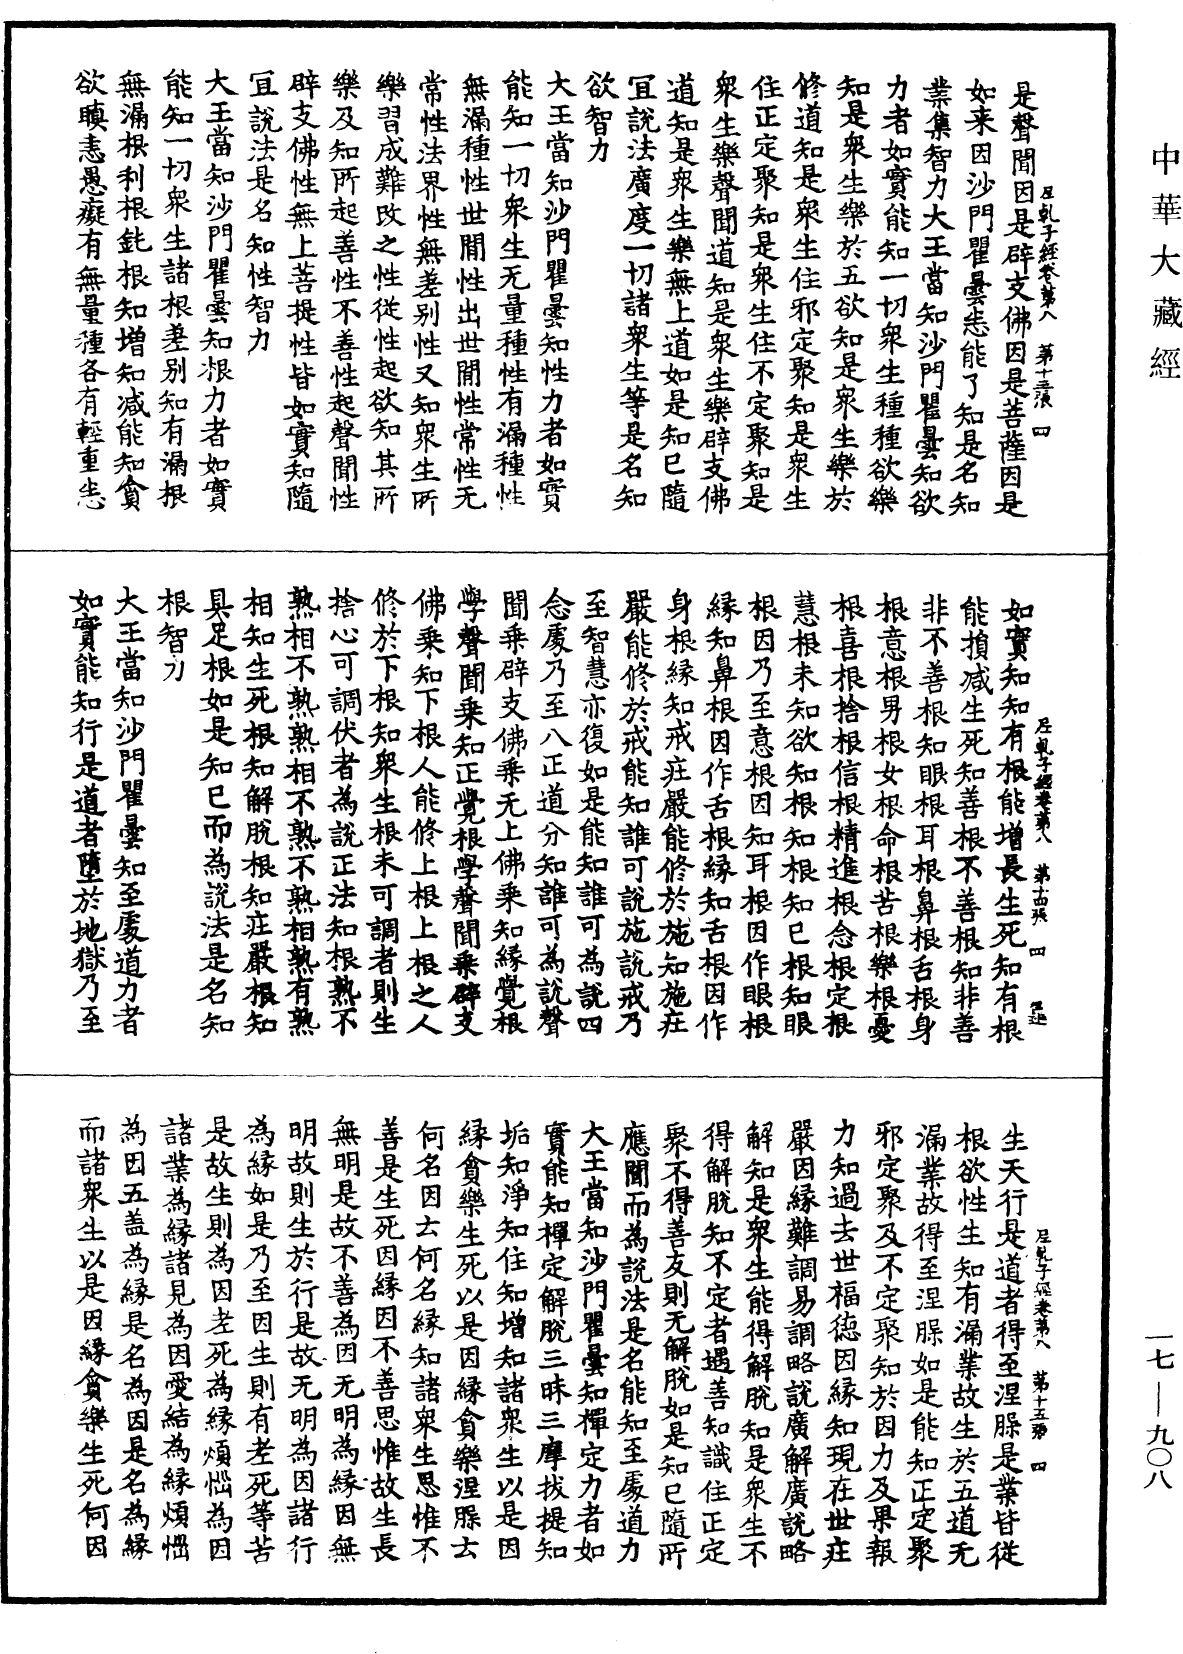 中華大藏經
尼乹子經卷第八　第十三張　四
是聲聞因是辟支佛因是菩薩因是
如来因沙門瞿曇悉能了知是名知
業集智力大王當知沙門瞿曇知欲
力者如實能知一切衆生種種欲樂
知是衆生樂於五欲知是衆生樂於
修道知是衆生住邪定聚知是衆生
住正定聚知是衆生住不定聚知是
衆生樂聲聞道知是衆生樂辟支佛
道知是衆生樂無上道如是知已隨
冝說法廣度一切諸衆生等是名知
欲智力
大王當知沙門瞿曇知性力者如實
能知一切衆生无量種性有漏種性
無漏種性世間性出世間性常性无
常性法界性無差别性又知衆生所
樂習成難改之性從性起欲知其所
樂及知所起善性不善性起聲聞性
辟支佛性無上菩提性皆如實知隨
冝說法是名知性智力
大王當知沙門瞿曇知根力者如實
能知一切衆生諸根差别知有漏根
無漏根利根鈍根知增知减能知貪
欲瞋恚愚癡有無量種各有輕重悉
尼乹子經卷第八　第十四張　四
如實知知有根能增長生死知有根
能損减生死知善根不善根知非善
非不善根知眼根耳根鼻根舌根身
根意根男根女根命根苦根樂根憂
根喜根捨根信根精進根念根定根
慧根未知欲知根知根知已根知眼
根因乃至意根因知耳根因作眼根
縁知鼻根因作舌根縁知舌根因作
身根縁知戒莊嚴能修於施知施莊
嚴能修於戒能知誰可說施說戒乃
至智慧亦復如是能知誰可為說四
念處乃至八正道分知誰可為說聲
聞乘辟支佛乘无上佛乘知縁覺根
學聲聞乘知正覺根學聲聞乘辟支
佛乘知下根人能修上根上根之人
修於下根知衆生根未可調者則生
捨心可調伏者為說正法知根熟不
熟相不熟熟相不熟不熟相熟有熟
相知生死根知解脫根知莊嚴根知
具足根如是知已而為說法是名知
根智力
大王當知沙門瞿曇知至處道力者
如實能知行是道者墮於地獄乃至
尼乹子經卷第八　第十五張　四
生天行是道者得至涅槃是業皆從
根欲性生知有漏業故生於五道无
漏業故得至涅槃如是能知正定聚
邪定聚及不定聚知於因力及果報
力知過去世福徳因縁知現在世莊
嚴因縁難調易調略說廣解廣說略
解知是衆生能得解脫知是衆生不
得解脫知不定者遇善知識住正定
聚不得善友則无解脫如是知已隨所
應聞而為說法是名能知至處道力
大王當知沙門瞿曇知禪定力者如
實能知禪定解脫三昧三摩拔提知
垢知淨知住知增知諸衆生以是因
縁貪樂生死以是因縁貪樂涅槃云
何名因云何名縁知諸衆生思惟不
善是生死因縁因不善思惟故生長
無明是故不善為因无明為縁因無
明故則生於行是故无明為因諸行
為縁如是乃至因生則有老死等苦
是故生則為因老死為縁煩惱為因
諸業為縁諸見為因愛結為縁煩惱
為因五盖為縁是名為因是名為縁
而諸衆生以是因縁貪樂生死何因
一七—九〇八